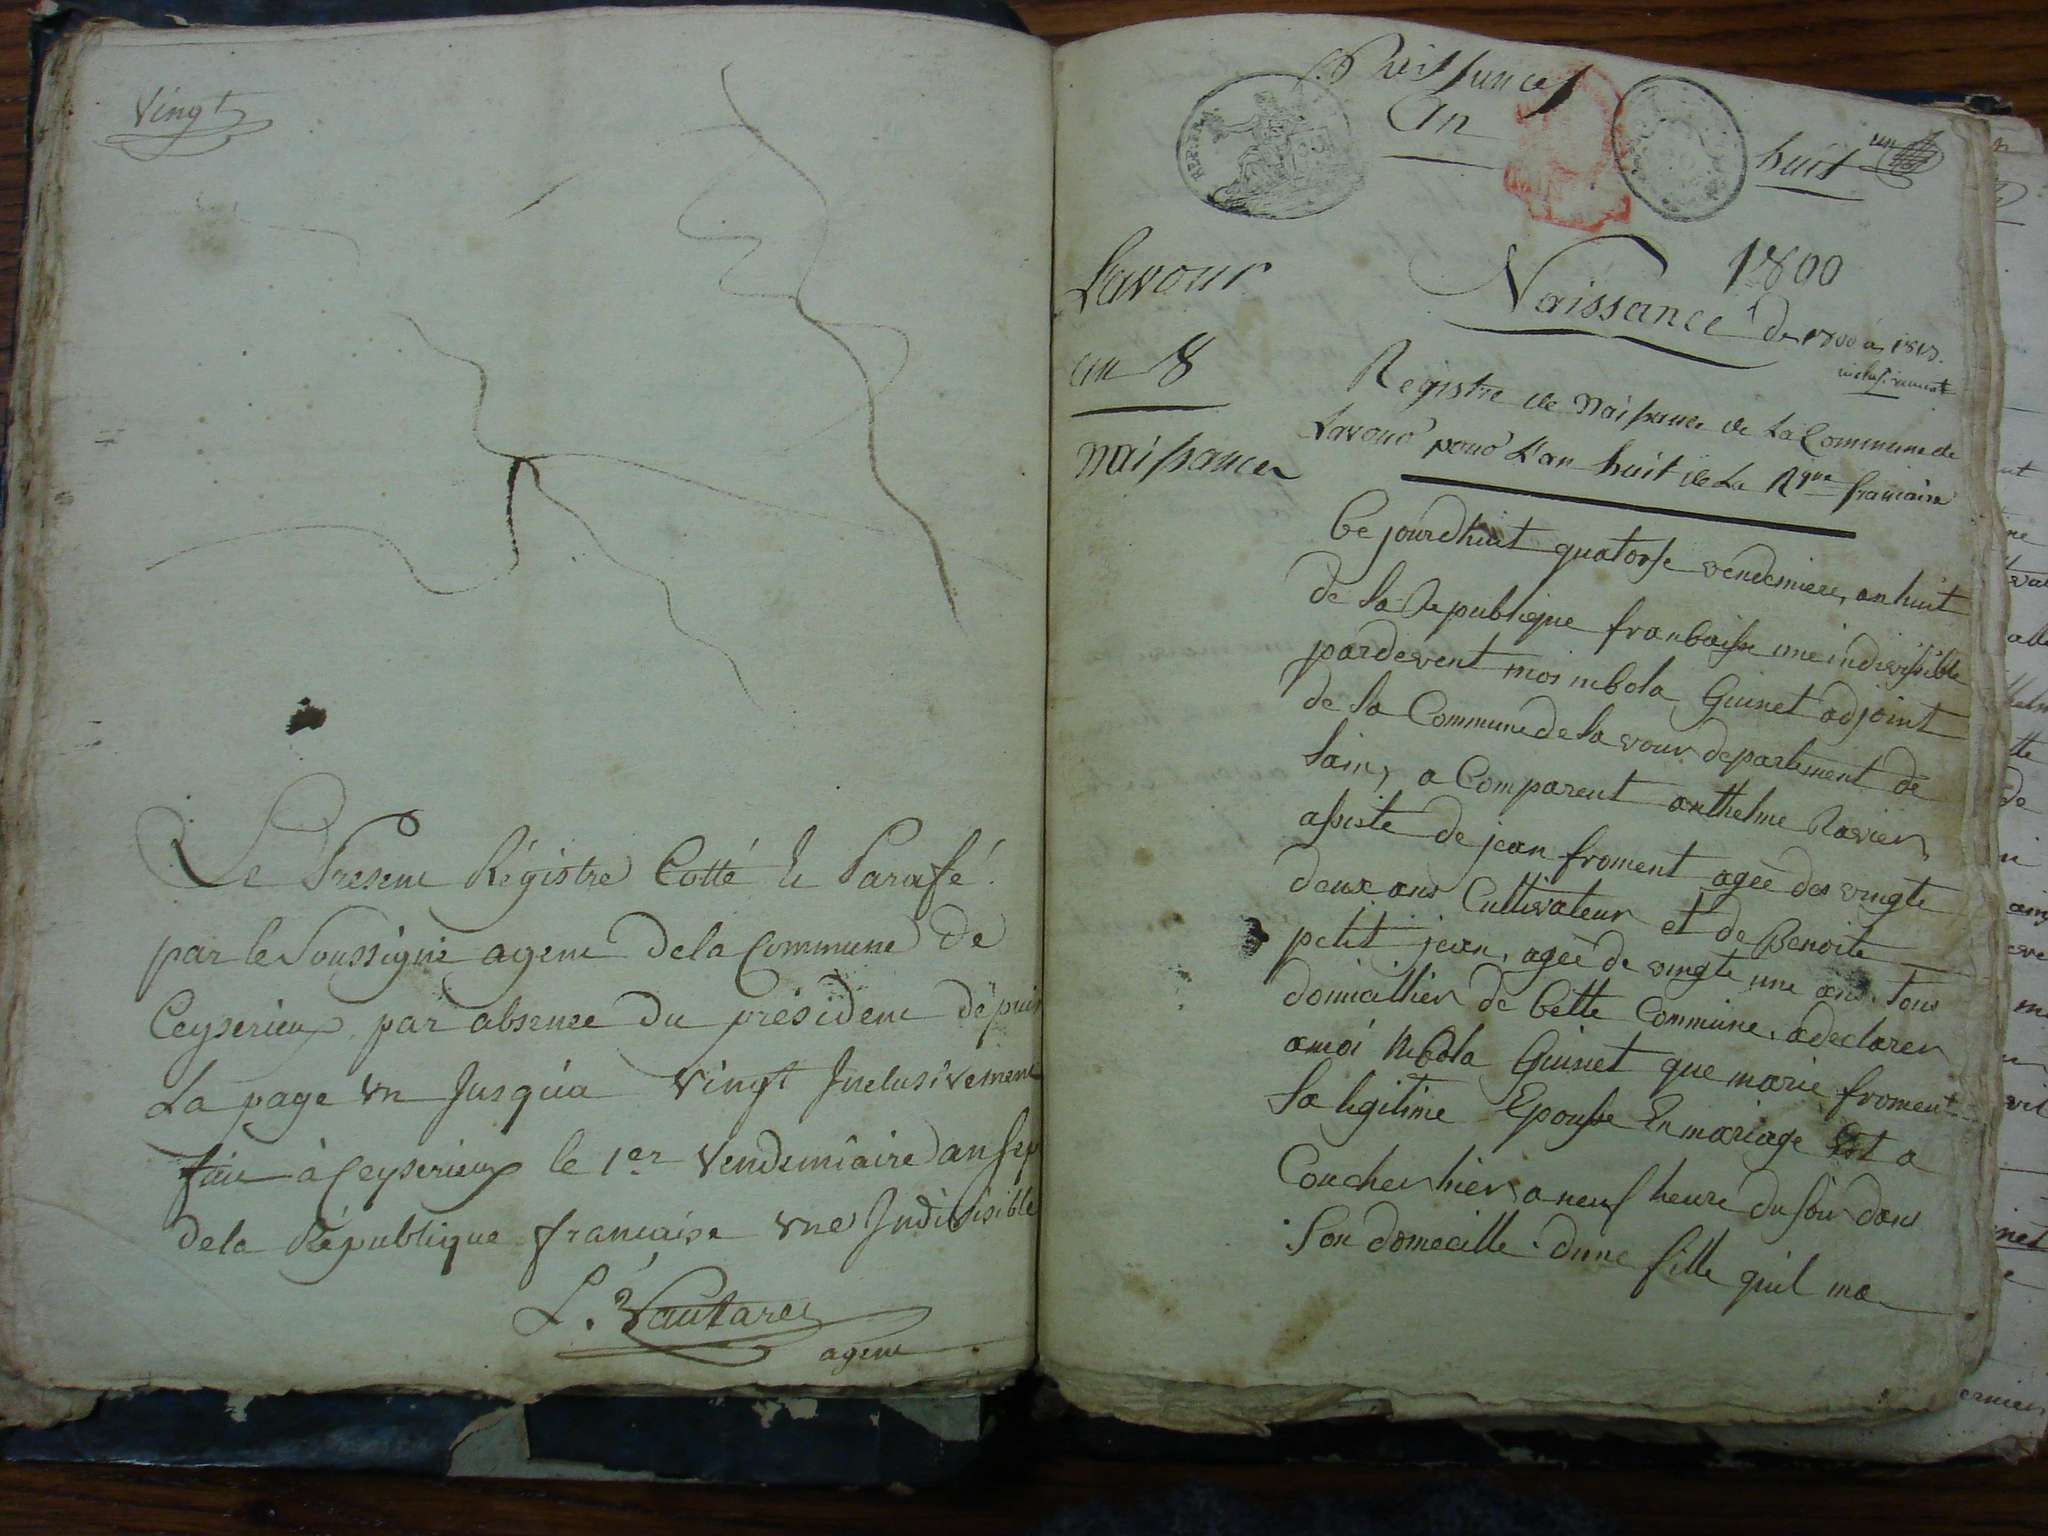 Vingt
Le Present Régistre Cotté & Parafé
par le Soussigné agent de la Commune de
Ceyserieux par absence du président dépuis
La page un Jusqu'a vingt Inclusivement
fait à Ceyserieux le 1er Vendemiaire dan sep
de la République francaise une Indivisible
agent
Naissances
An huit un
Lavour
an 8
naissances
1800
Naissance de 1800 à 1817.
inclusivement
Registre de Naissances de La Commune de
Lavour pour L'an huit de La Rque francaise
Ce jourdhuit quatorse vendemiere, an huit
de la Republique franbaisse une indivissible
pardevent moi nibola Guinet adjoint
de la Commune de lavour departement de
lain, a Comparent anthelme Ravier
assisté de jean froment ageé des vingte
deux ans Cultivateur et de Benoite
petit jean, ageé de vingte une ans, tous
domicillier de Cette Commune, a declarer
a moi Nibola Guinet que marie froment
sa legitime Epousse En mariage Est a
Coucher hier a neuf heure du soir dans
Son domecille. dune fille quil ma